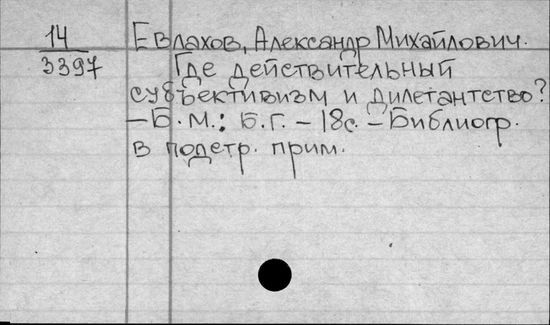 14
3397
Евлахов, Александр Михайлович.
Где действительный
субъективизм и дилетантство?
– Б.М.: Б.Г. – 18с. – Библиогр.
в подстр. прим.